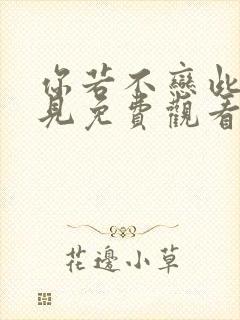 你若不戀此
見免費觀看
花邊小草